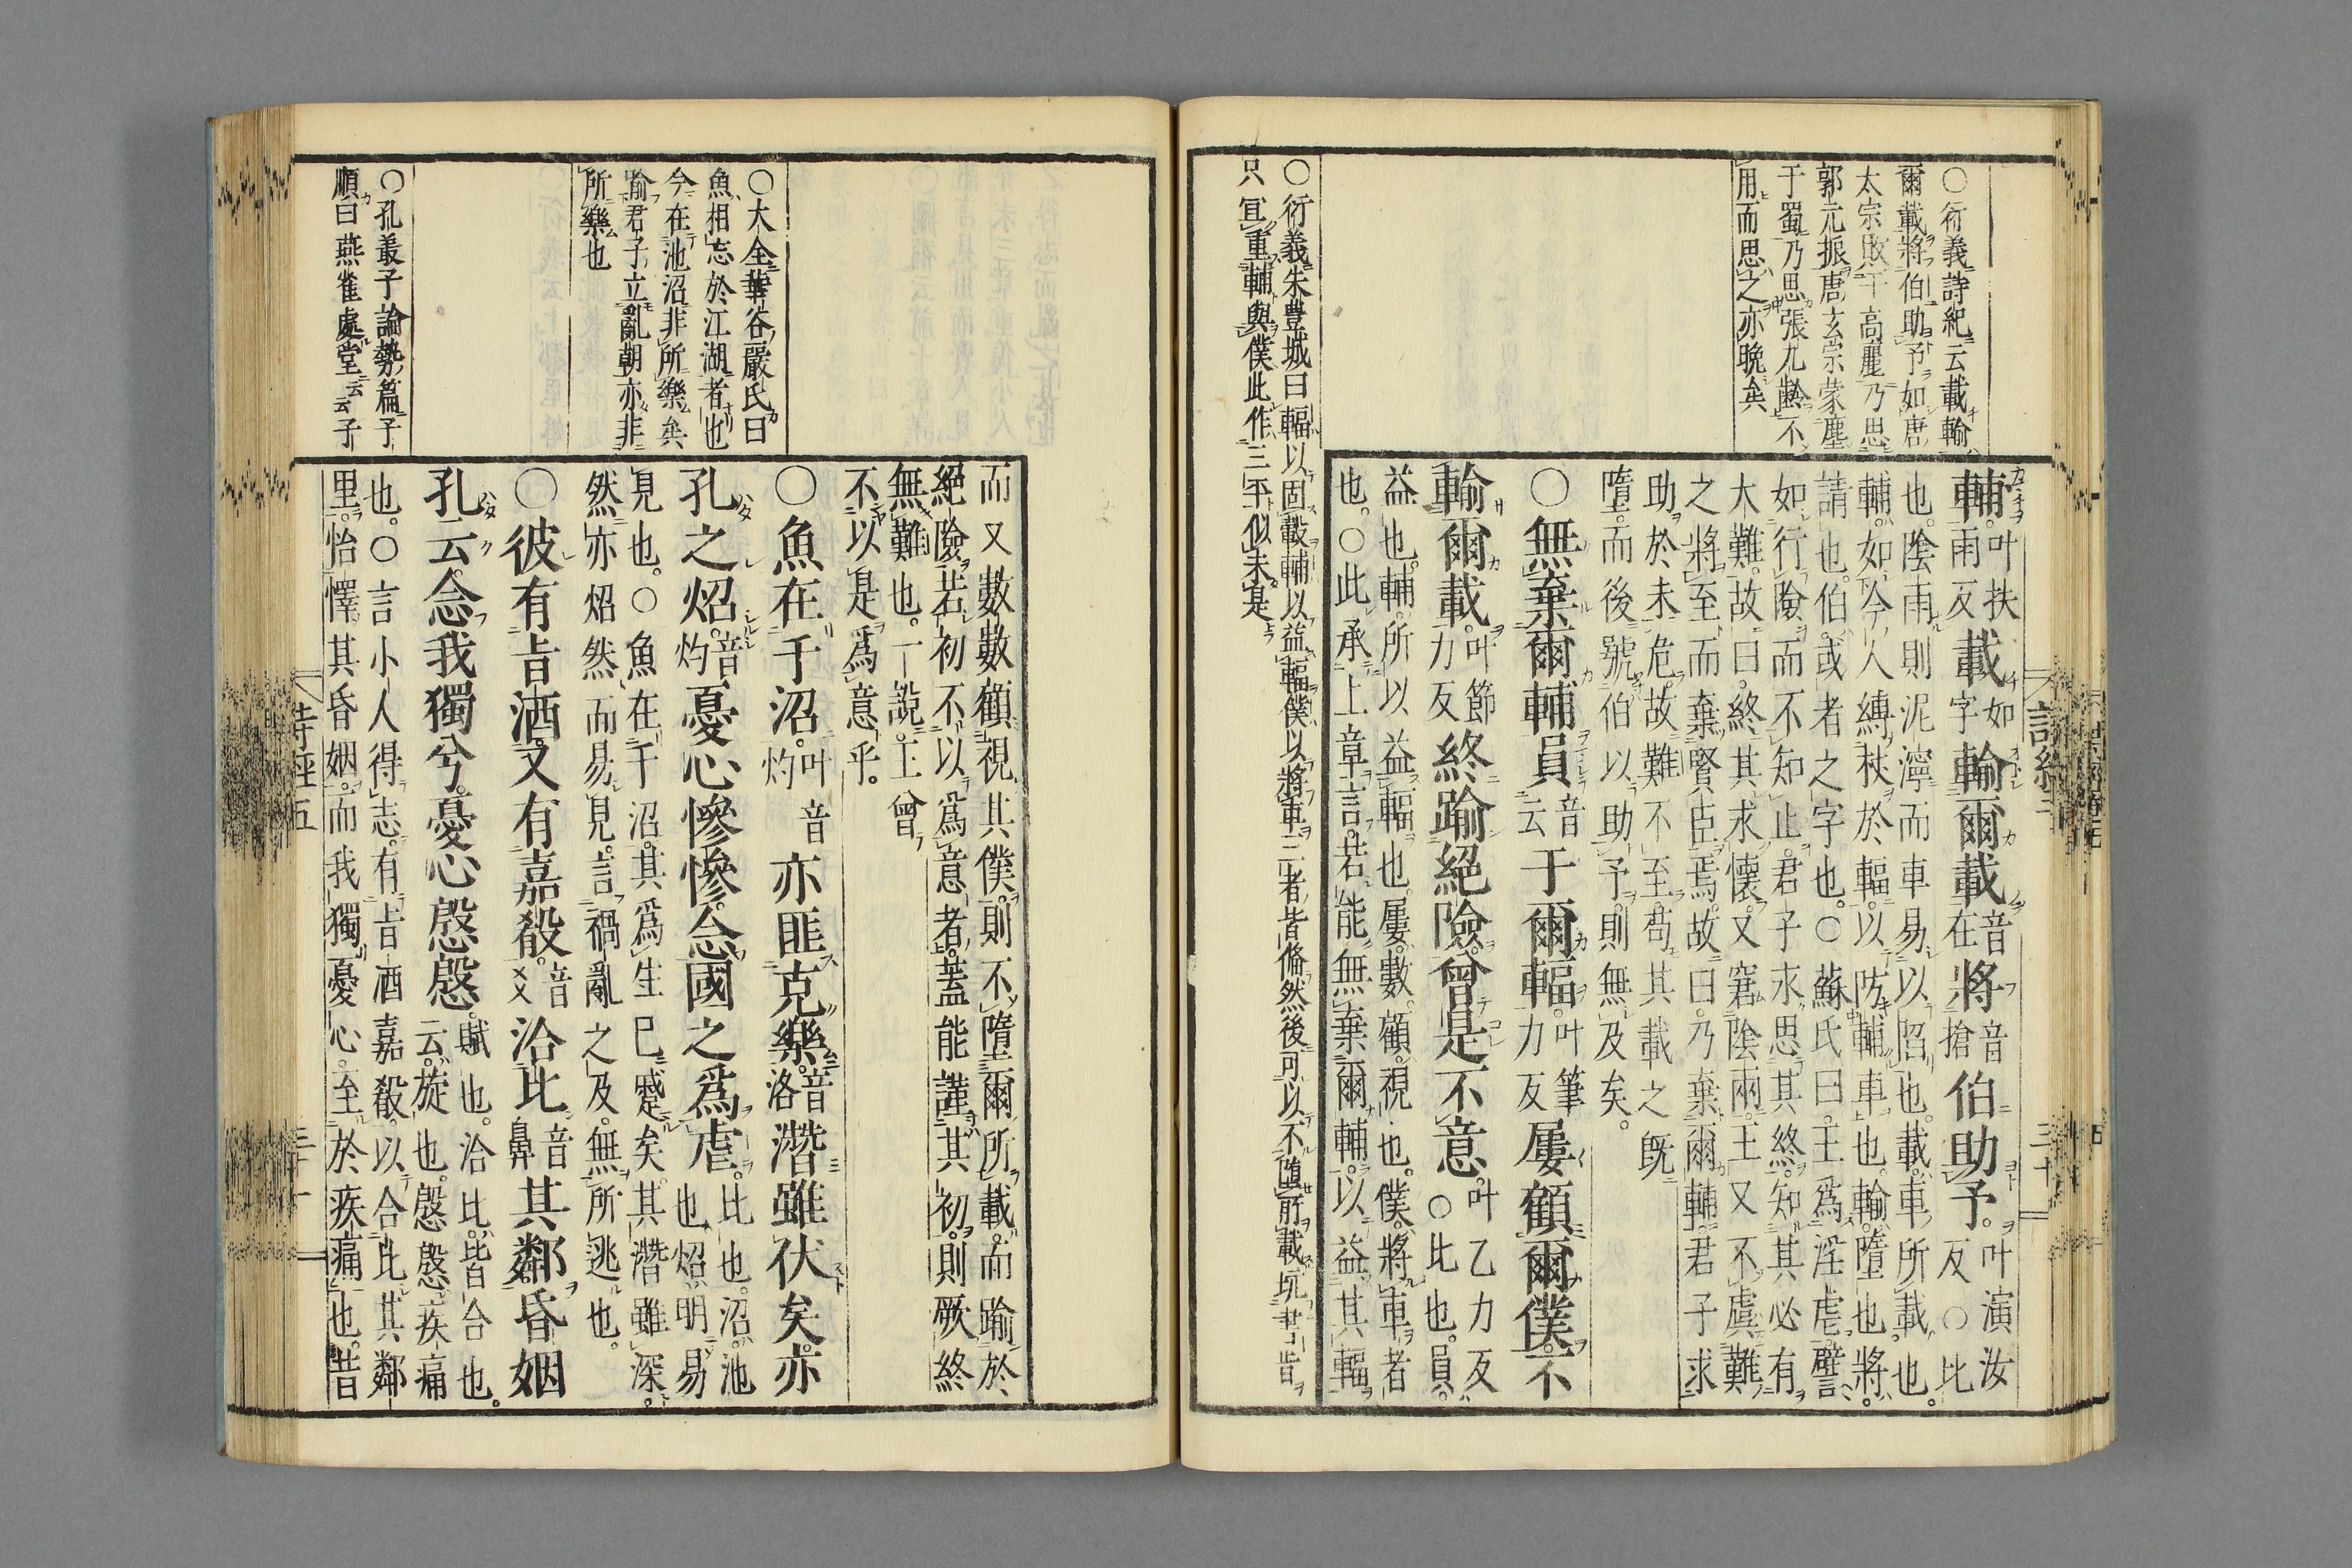 ○衍義詩紀云載輸
爾載將伯助予如唐
太宗敗于高麗乃思
郭元振唐玄宗蒙塵
于蜀乃思張九齡不
用而思之亦晩矣
○衍義朱豊城曰輻以固轂輔以益輻僕以將車三者皆脩然後可以不墮所載坑書皆
只冝重輔與僕此作三平似未是
輔叶扶雨反載如字輸爾載音在將音搶伯助予叶演汝反○比
也陰雨則泥濘而車易以陷也載車所載也
輔如今人縛杖於輻以防輔車也輸墮也將
請也伯或者之字也○蘇氏曰王爲淫虐譬
如行險而不知止君子求思其終知其必有
大難故曰終其求懷又窘陰雨王又不虞難
之將至而棄賢臣焉故曰乃棄爾輔君子求
助於未危故難不至苟其載之旣
墮而後號伯以助予則無及矣
○無棄爾輔員音云于爾輻叶筆力反屢顧爾僕不
輸爾載叶節力反終踰絕險曾是不意叶乙力反○比也員
益也輔所以益輻也屢數顧視也僕將車者
也○此承上章言若能無棄爾輔以益其輻
而又數數顧視其僕則不墮爾所載而踰於
絕險若初不以爲意者蓋能謹其初則厥終
無難也一說王曾
不以是爲意乎
○魚在于沼叶音灼亦匪克樂音洛潛雖伏矣亦
孔之炤音灼憂心慘慘念國之爲虐比也沼池也炤明易
見也○魚在于沼其爲生已蹙矣其潛雖深
然亦炤然而易見言禍亂之及無所逃也
○彼有旨酒又有嘉殽音爻洽比音鼻其鄰昏姻
孔云念我獨兮憂心慇慇賦也洽比皆合也云旋也慇慇疾痛
也○言小人得志有旨酒嘉殽以合比其鄰
里怡懌其昏姻而我獨憂心至於疾痛也昔
○大全華谷嚴氏曰
魚相忘於江湖者也
今在池沼非所樂矣
喻君子立亂朝亦非
所樂也
○孔叢子論勢篇子
順曰燕雀處堂云云子